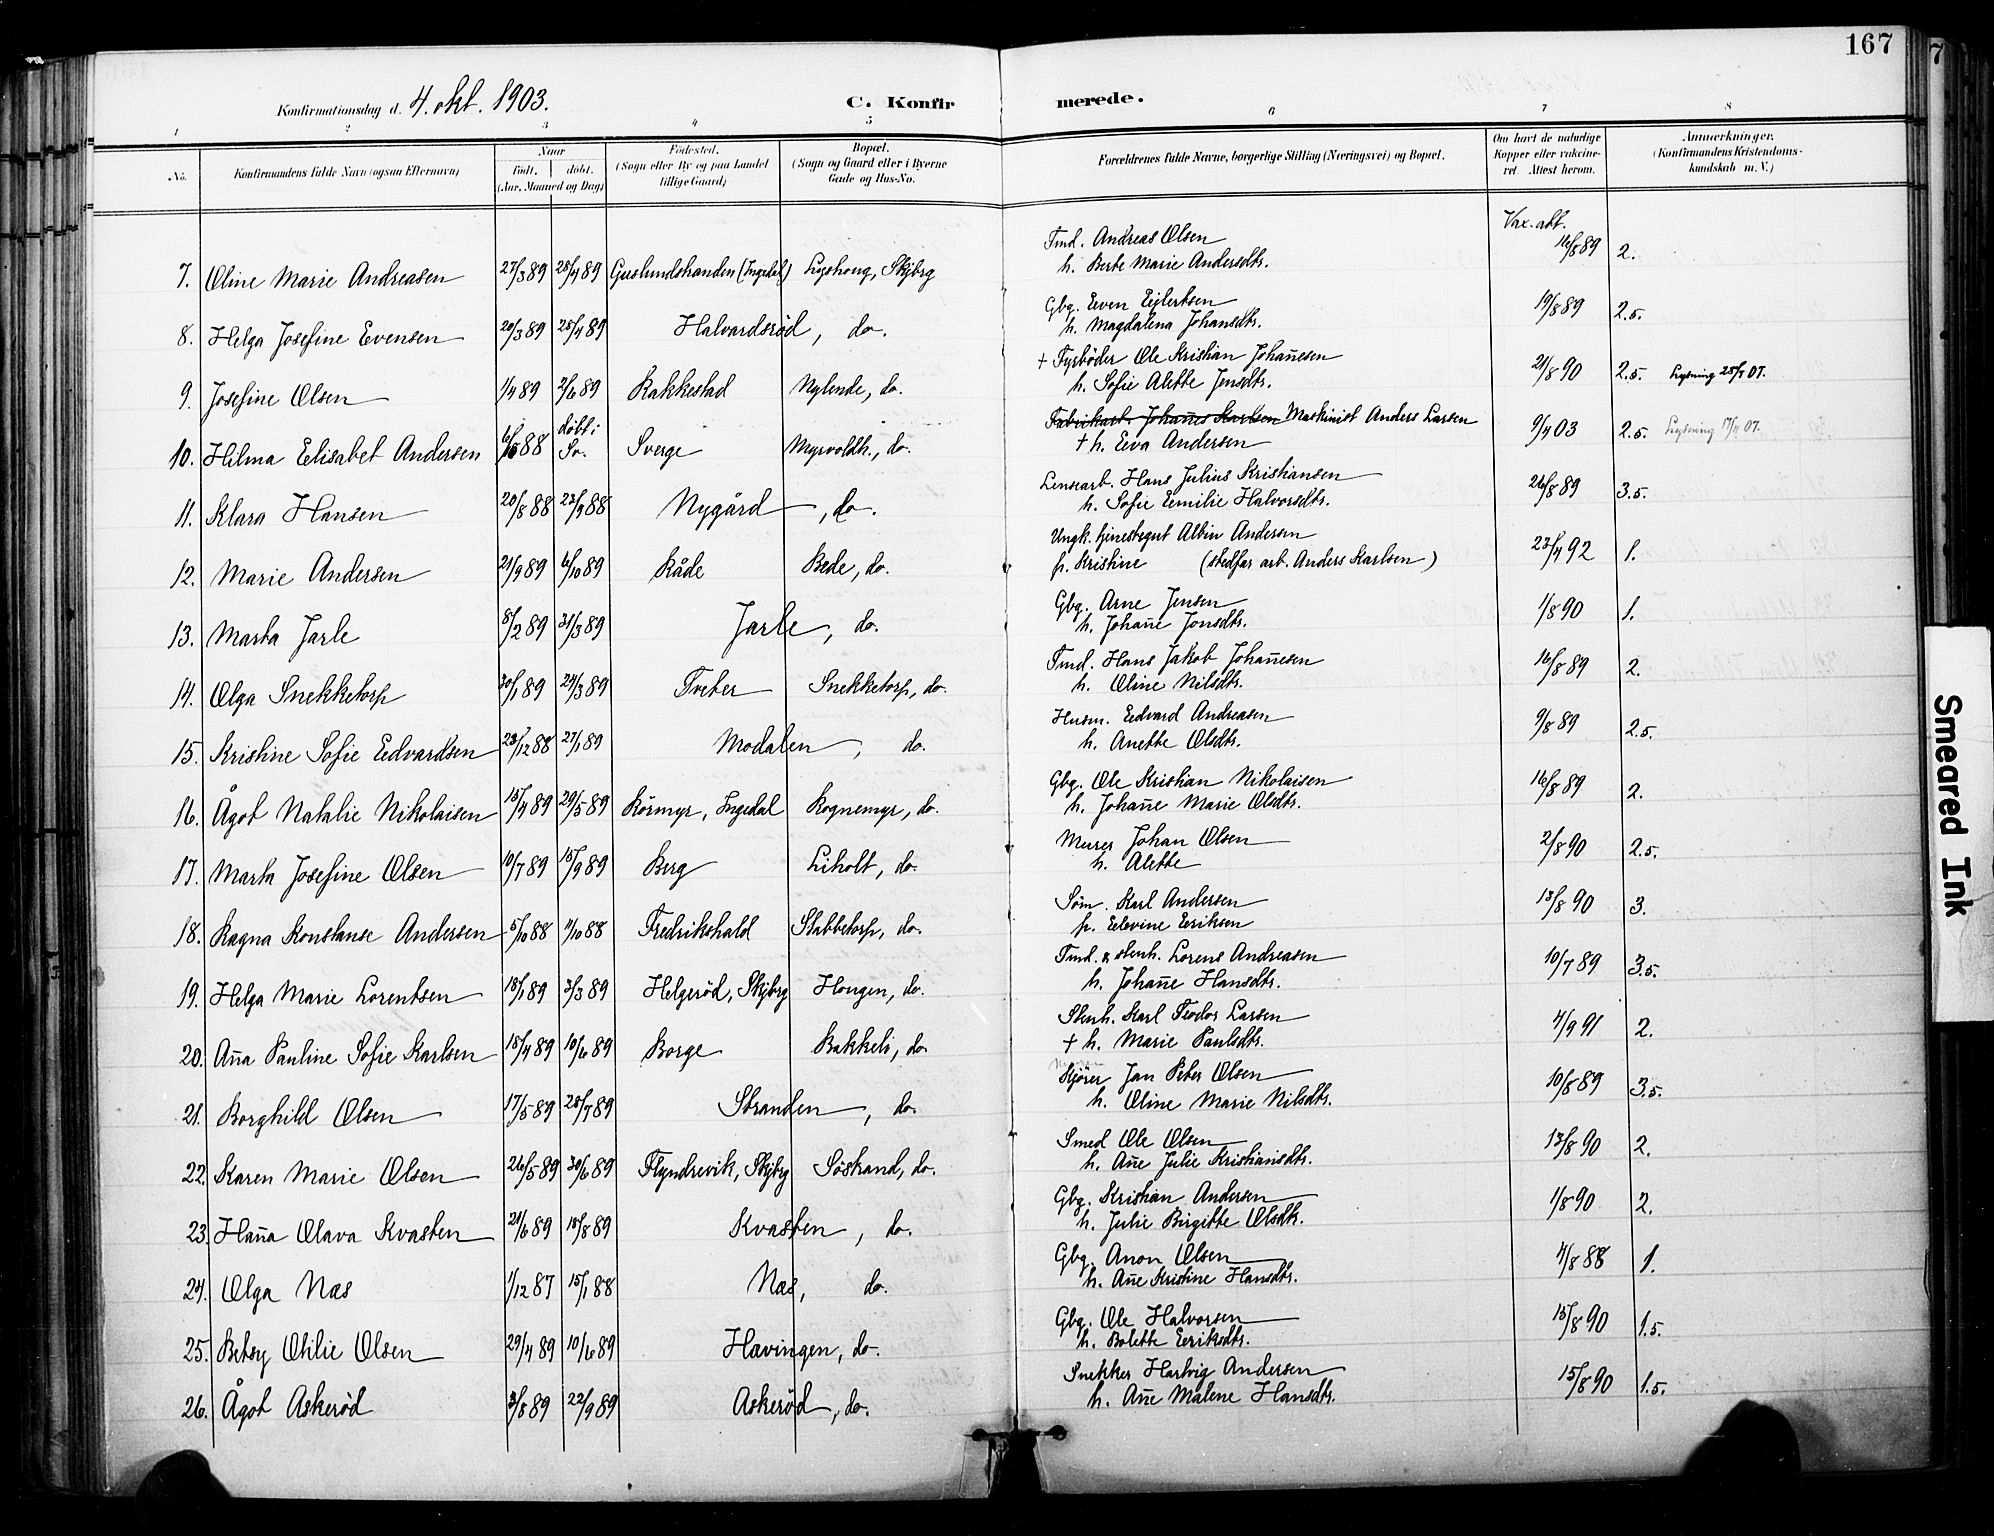 167
Konfirmationsdag d. 4. okt. 1903.
C. Konfirmerede.
1 2 3 4 5 6 7 8
No.
Konfirmandens fulde Navn (ogsaa Efternavn)
Naar
født. døbt.
(Aar, Maaned og Dag)
Fødested.
(Sogn eller By og paa Landet
tillige Gaard)
Bopæl.
(Sogn og Gaard eller i Byerne
Gade og Hus-No.
Forældrenes fulde Navne, borgerlige Stilling (Næringsvei) og Bopæl.
Om havt de naturlige
Kopper eller vakcine-
ret. Attest herom.
Anmærkninger.
(Konfirmandens Kristendoms-
kundskab m. V.)
Vax. att.
Tmd. Andreas Olsen
7. Oline Marie Andreasen 27/3 89 28/4 89 (Ingedal) Skjbrg h. Berte Marie Andersdtr. 16/8 89 2.
Gbg. Even Eilertsen
8. Helga Josefine Evensen 20/3 89 28/4 89 Halvardsröd, do. h. Magdalena Johansdtr. 19/8 89 2.5.
+ Fyrböder Ole Kristian Johan̄esen
9. Josefine Olsen 1/4 89 2/6 89 Rakkestad Nylende, do. h. Sofie Alette Jensdtr. 21/8 90 2.5. Lysning 25/5 07.
Fabrikarb. Johan̄es Karlsen Maskinist Anders Larsen
10. Hilma Elisabet Andersen 88 døbt i Sv. Sverge Myrvoldh., do. + h. Eva Andersen 9/4 03 2.5. Lysning 07.
Lensearb. Hans Julius Kristiansen
11. Klara Hansen 20/8 88 23/9 88 Nygård, do. h. Sofie Emilie Halvorsdtr. 26/8 89 3.5.
Ungk. tjenestegut Albin Andersen
12. Marie Andersen 21/9 89 6/10 89 Råde Bede, do. p. Kristine (stedfar arb. Anders Karlsen) 23/4 92 1.
Gbg. Arne Jensen
13. Marta Jarle 8/2 89 31/3 89 Jarle, do. h. Johan̄e Jonsdtr. 1/8 90 1.
Tmd. Hans Jakob Johan̄esen
14. Olga Snekketorp 30/1 89 24/3 89 Tveter Snekketorp, do. h. Oline Nilsdtr. 16/8 89 2.
Husm. Edvard Andreasen
15. Kristine Sofie Edvardsen 23/12 88 27/1 89 Modalen, do. h. Anette Olsdtr. 9/8 89 2.5.
Gbg. Ole Kristian Nikolaisen
16. Ågot Natalie Nikolaisen 15/4 89 29/5 89 Körmyr, Ingedal Rognemyr, do. h. Johan̄e Marie Olsdtr. 16/8 89 2.
Murer Johan Olsen
17. Marta Josefine Olsen 10/7 89 15/9 89 Berg Liholt, do. h. Alette 2/8 90 2.5.
Söm. Karl Andersen
18. Ragna Konstanse Andersen 5/10 88 11/10 88 Fredrikshald Stabbetorp, do. p. Elevine Eriksen 13/8 90 3.
Tmd. & stenh. Lorens Andreasen
19. Helga Marie Lorentsen 18/1 89 3/3 89 Helgeröd, Skjbrg Hougen, do. h. Johan̄e Hansdtr. 10/7 89 3.5.
Stenh. Karl Teodor Larsen
20. An̄a Pauline Sofie Karlsen 15/4 89 10/6 89 Borge Bakkeli, do. + h. Marie Paulsdtr. 4/9 91 2.
Kjörer Jan Peter Olsen
21. Borghild Olsen 17/5 89 28/7 89 Stranden, do. h. Oline Marie Nilsdtr. 10/8 89 3.5.
Smed Ole Olsen
22. Karen Marie Olsen 26/5 89 30/6 89 Flyndrevik, Skjbrg Söstrand, do. h. An̄e Julie Kristiansdtr. 13/8 90 2.
Gbg. Kristian Andersen
23. Han̄a Olava Kvasten 21/6 89 18/8 89 Kvasten, do. h. Julie Birgitte Olsdtr. 1/8 90 2.
Gbg. Anon Olsen
24. Olga Næs 1/12 87 15/1 88 Næs, do. h. An̄e Kristine Hansdtr. 4/8 88 1.
Gbg. Ole Halvorsen
25. Betsy Otilie Olsen 29/4 89 10/6 89 Havingen, do. h. Bolette Eriksdtr. 15/8 90 1.5.
Snekker Hartvig Andersen
26. Ågot Askeröd 3/8 89 22/9 89 Askeröd, do. h. An̄e Malene Hansdtr. 15/8 90 1.5.
Smeared Ink